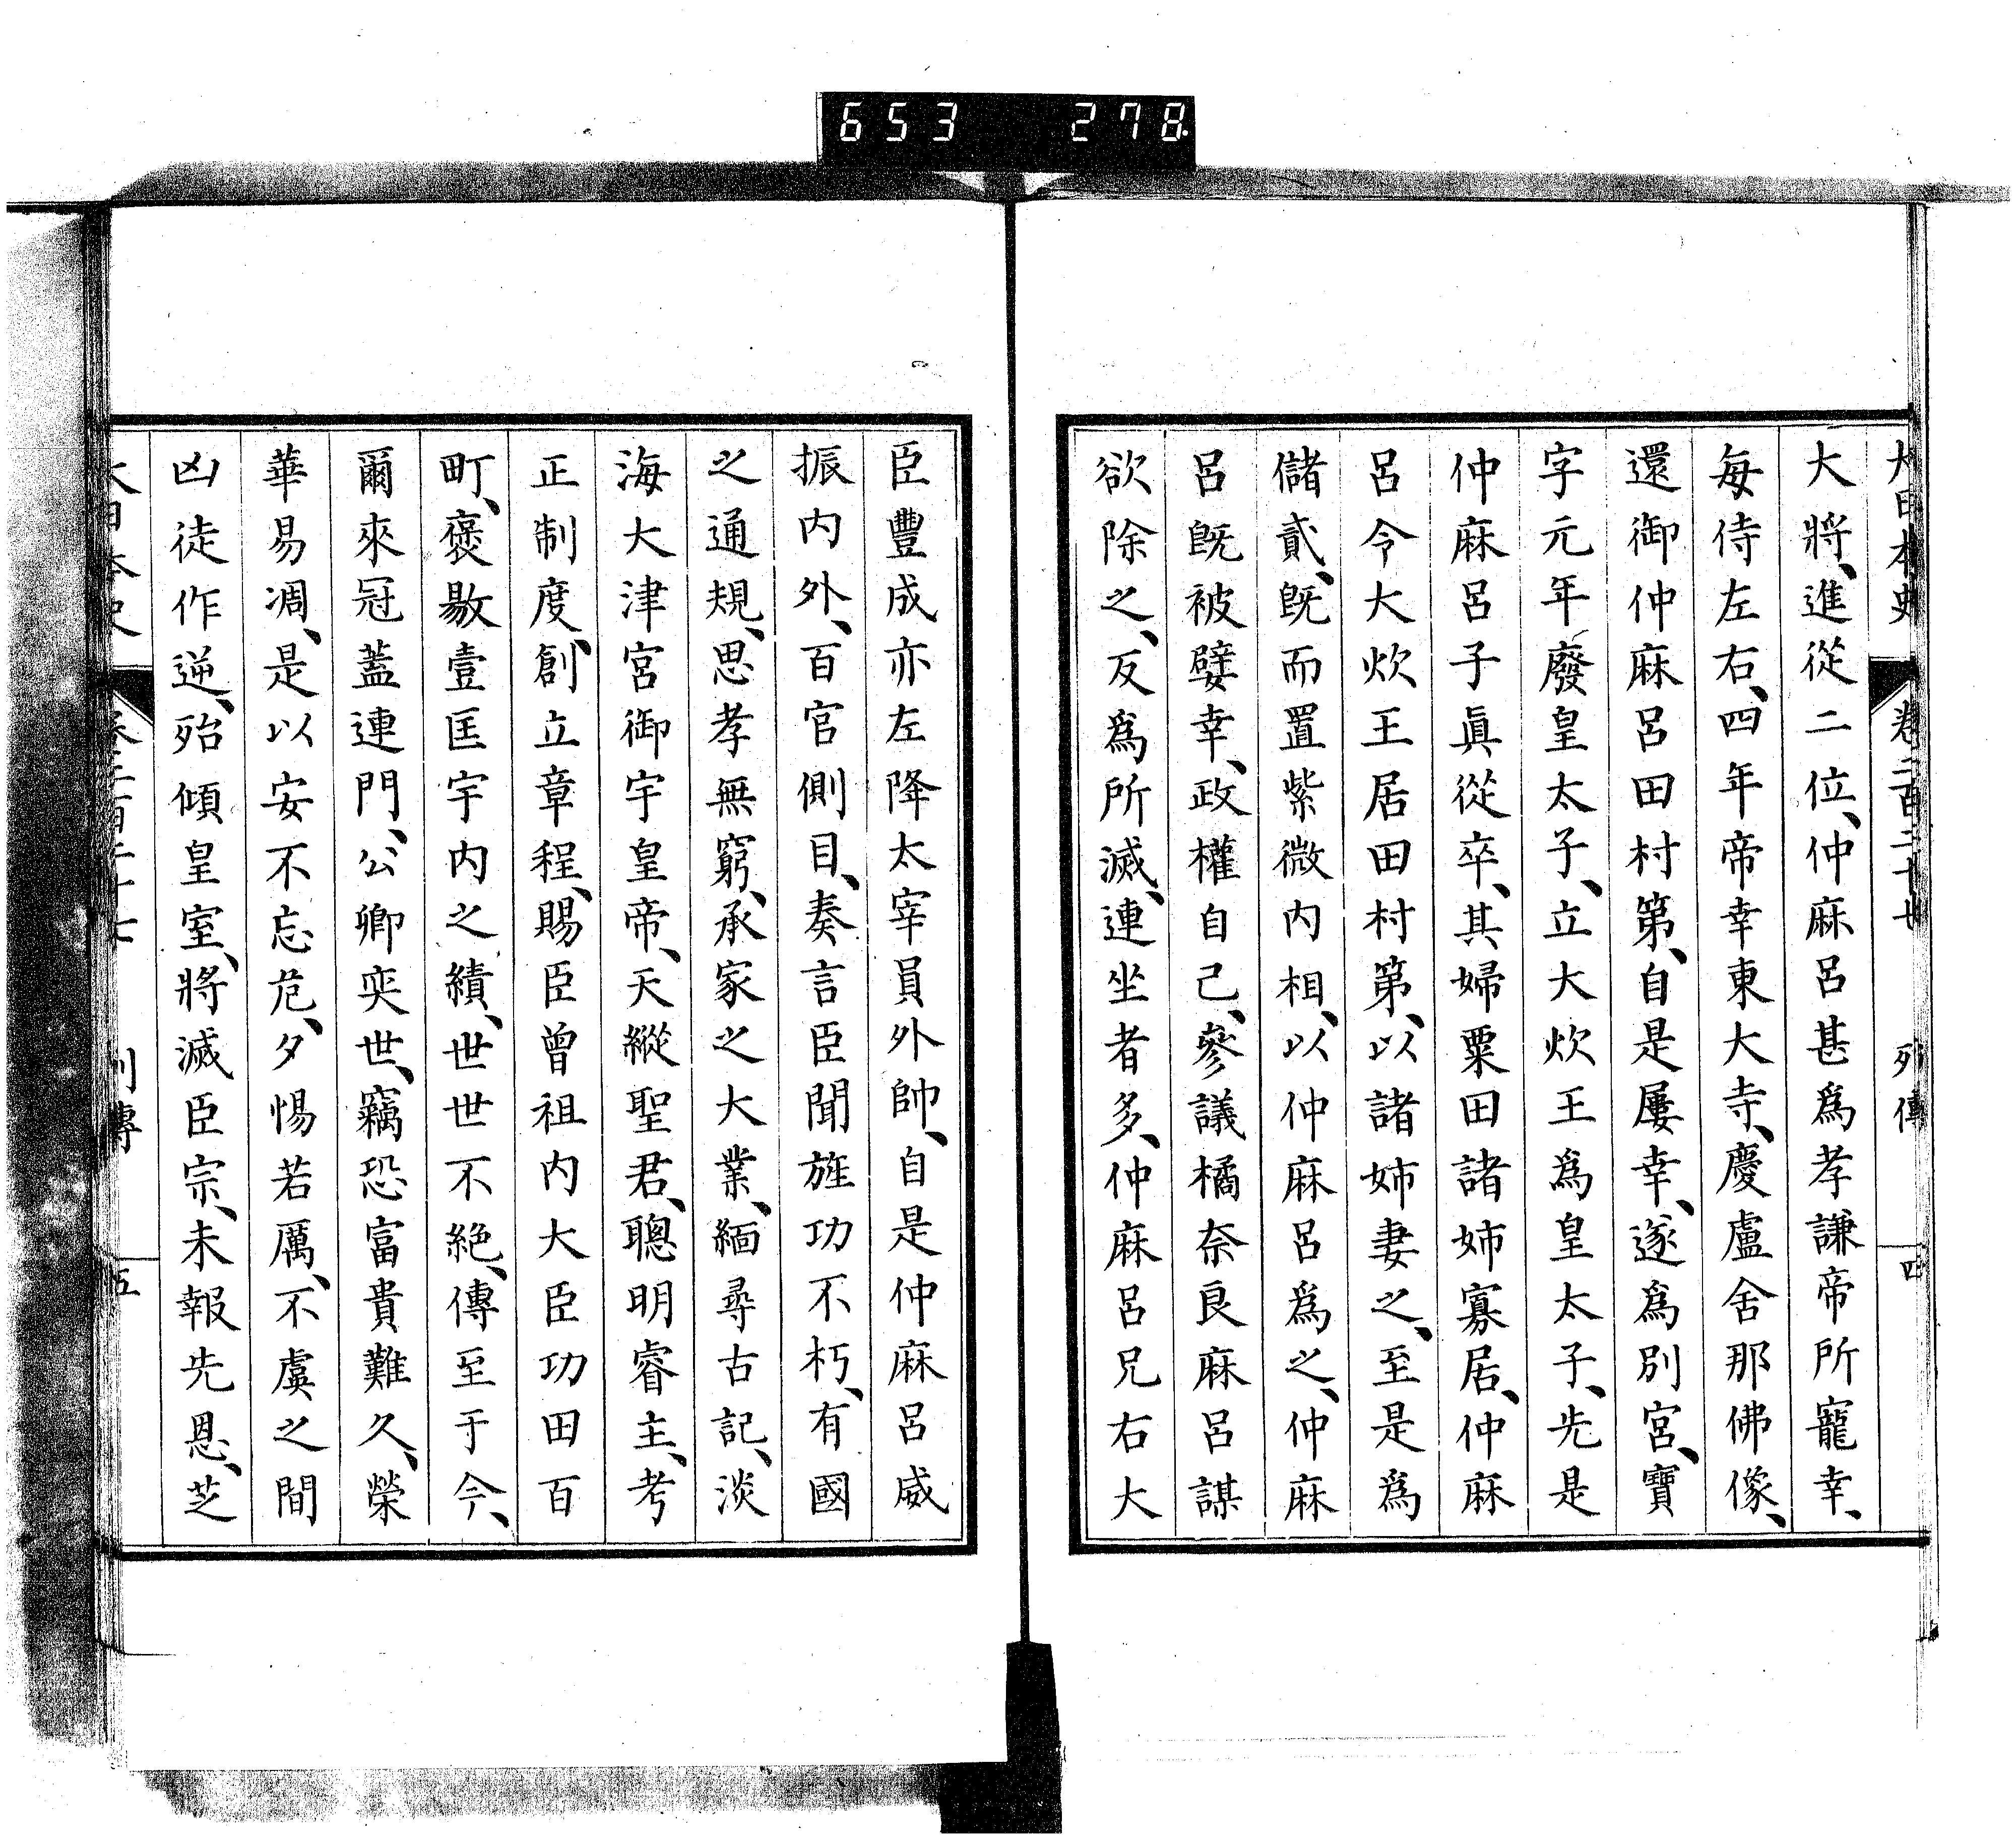 653 278
大日本史 卷二百二十七 列傳 四
大將、進從二位、仲麻呂甚爲孝謙帝所寵幸、
每侍左右、四年帝幸東大寺、慶盧舍那佛像、
還御仲麻呂田村第、自是屢幸、遂爲別宮、寶
字元年廢皇太子、立大炊王爲皇太子、先是
仲麻呂子眞從卒、其婦粟田諸姉寡居、仲麻
呂令大炊王居田村第、以諸姉妻之、至是爲
儲貳、既而置紫微內相、以仲麻呂爲之、仲麻
呂既被嬖幸、政權自己、參議橘奈良麻呂謀
欲除之、反爲所滅、連坐者多、仲麻呂兄右大
臣豐成亦左降太宰員外帥、自是仲麻呂威
振內外、百官側目、奏言臣聞旌功不朽、有國
之通規、思孝無窮、承家之大業、緬尋古記、淡
海大津宮御宇皇帝、天縱聖君、聰明睿主、考
正制度、創立章程、賜臣曾祖內大臣功田百
町、褒勠壹匡宇內之績、世世不絕、傳至于今、
爾來冠蓋連門、公卿奕世、竊恐富貴難久、榮
華易凋、是以安不忘危、夕惕若厲、不虞之間
凶徒作逆、殆傾皇室、將滅臣宗、未報先恩、芝
大日本史 卷二百二十七 列傳 五